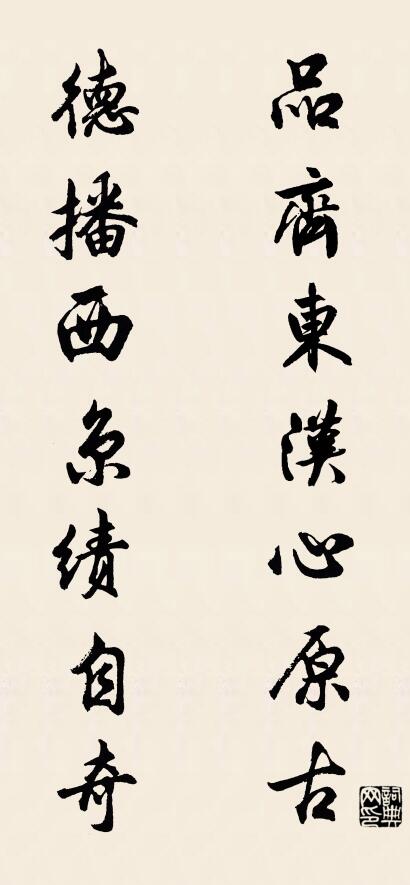 品齊東漢心原古
德播西京績自奇
詞典网印